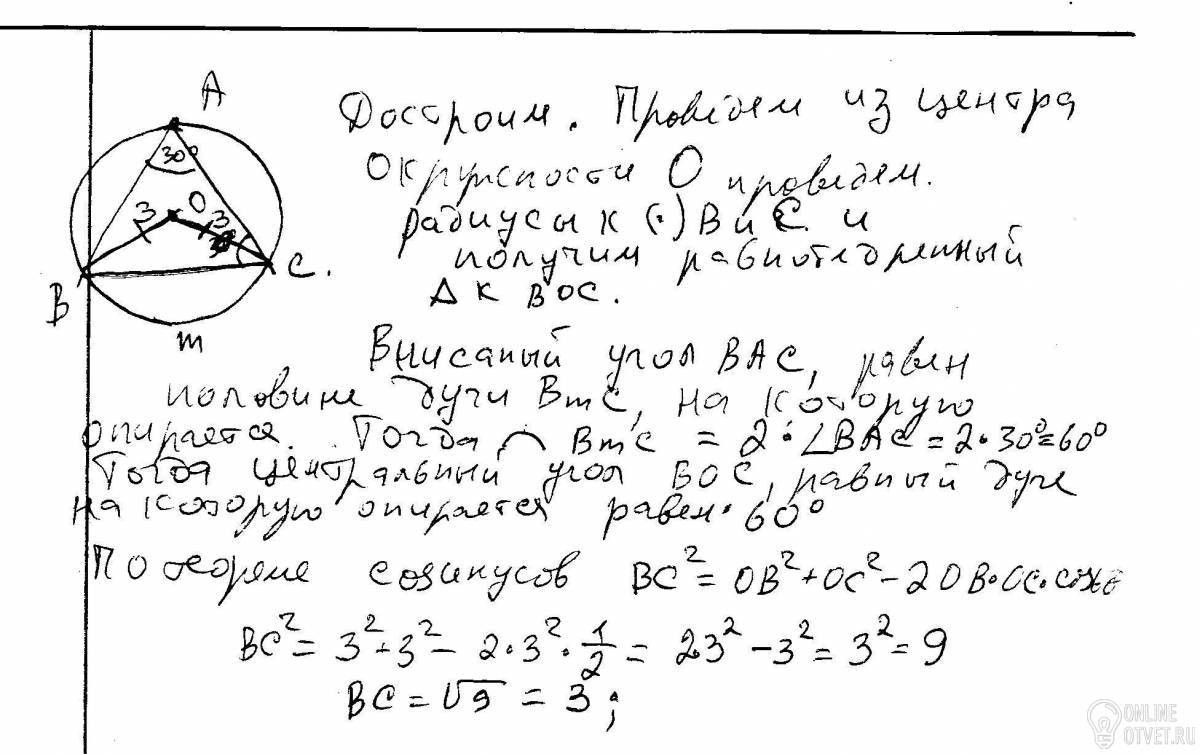 A
30°
3 O 3
B C.
m
Достроим. Провидем из центра
окружности О проведем.
радиусы к (·) В и С. и
получим равнобедренный
Δ к ВОС.
Вписаный угол ВАС, равен
половине дуги ВmС, на которую
опирается. Тогда ⌒ BmC = 2·∠BAC = 2·30°=60°
Тогда центральный угол ВОС, равный дуге
на которую опирается равен· 60°
По теореме косинусов BC² = OB²+OC²–2OB·OC·
BC² = 3²+3²– 2·3²·1/2 = 2·3²–3² = 3² = 9
BC = √9 = 3;
ONLINE
OTVET.RU